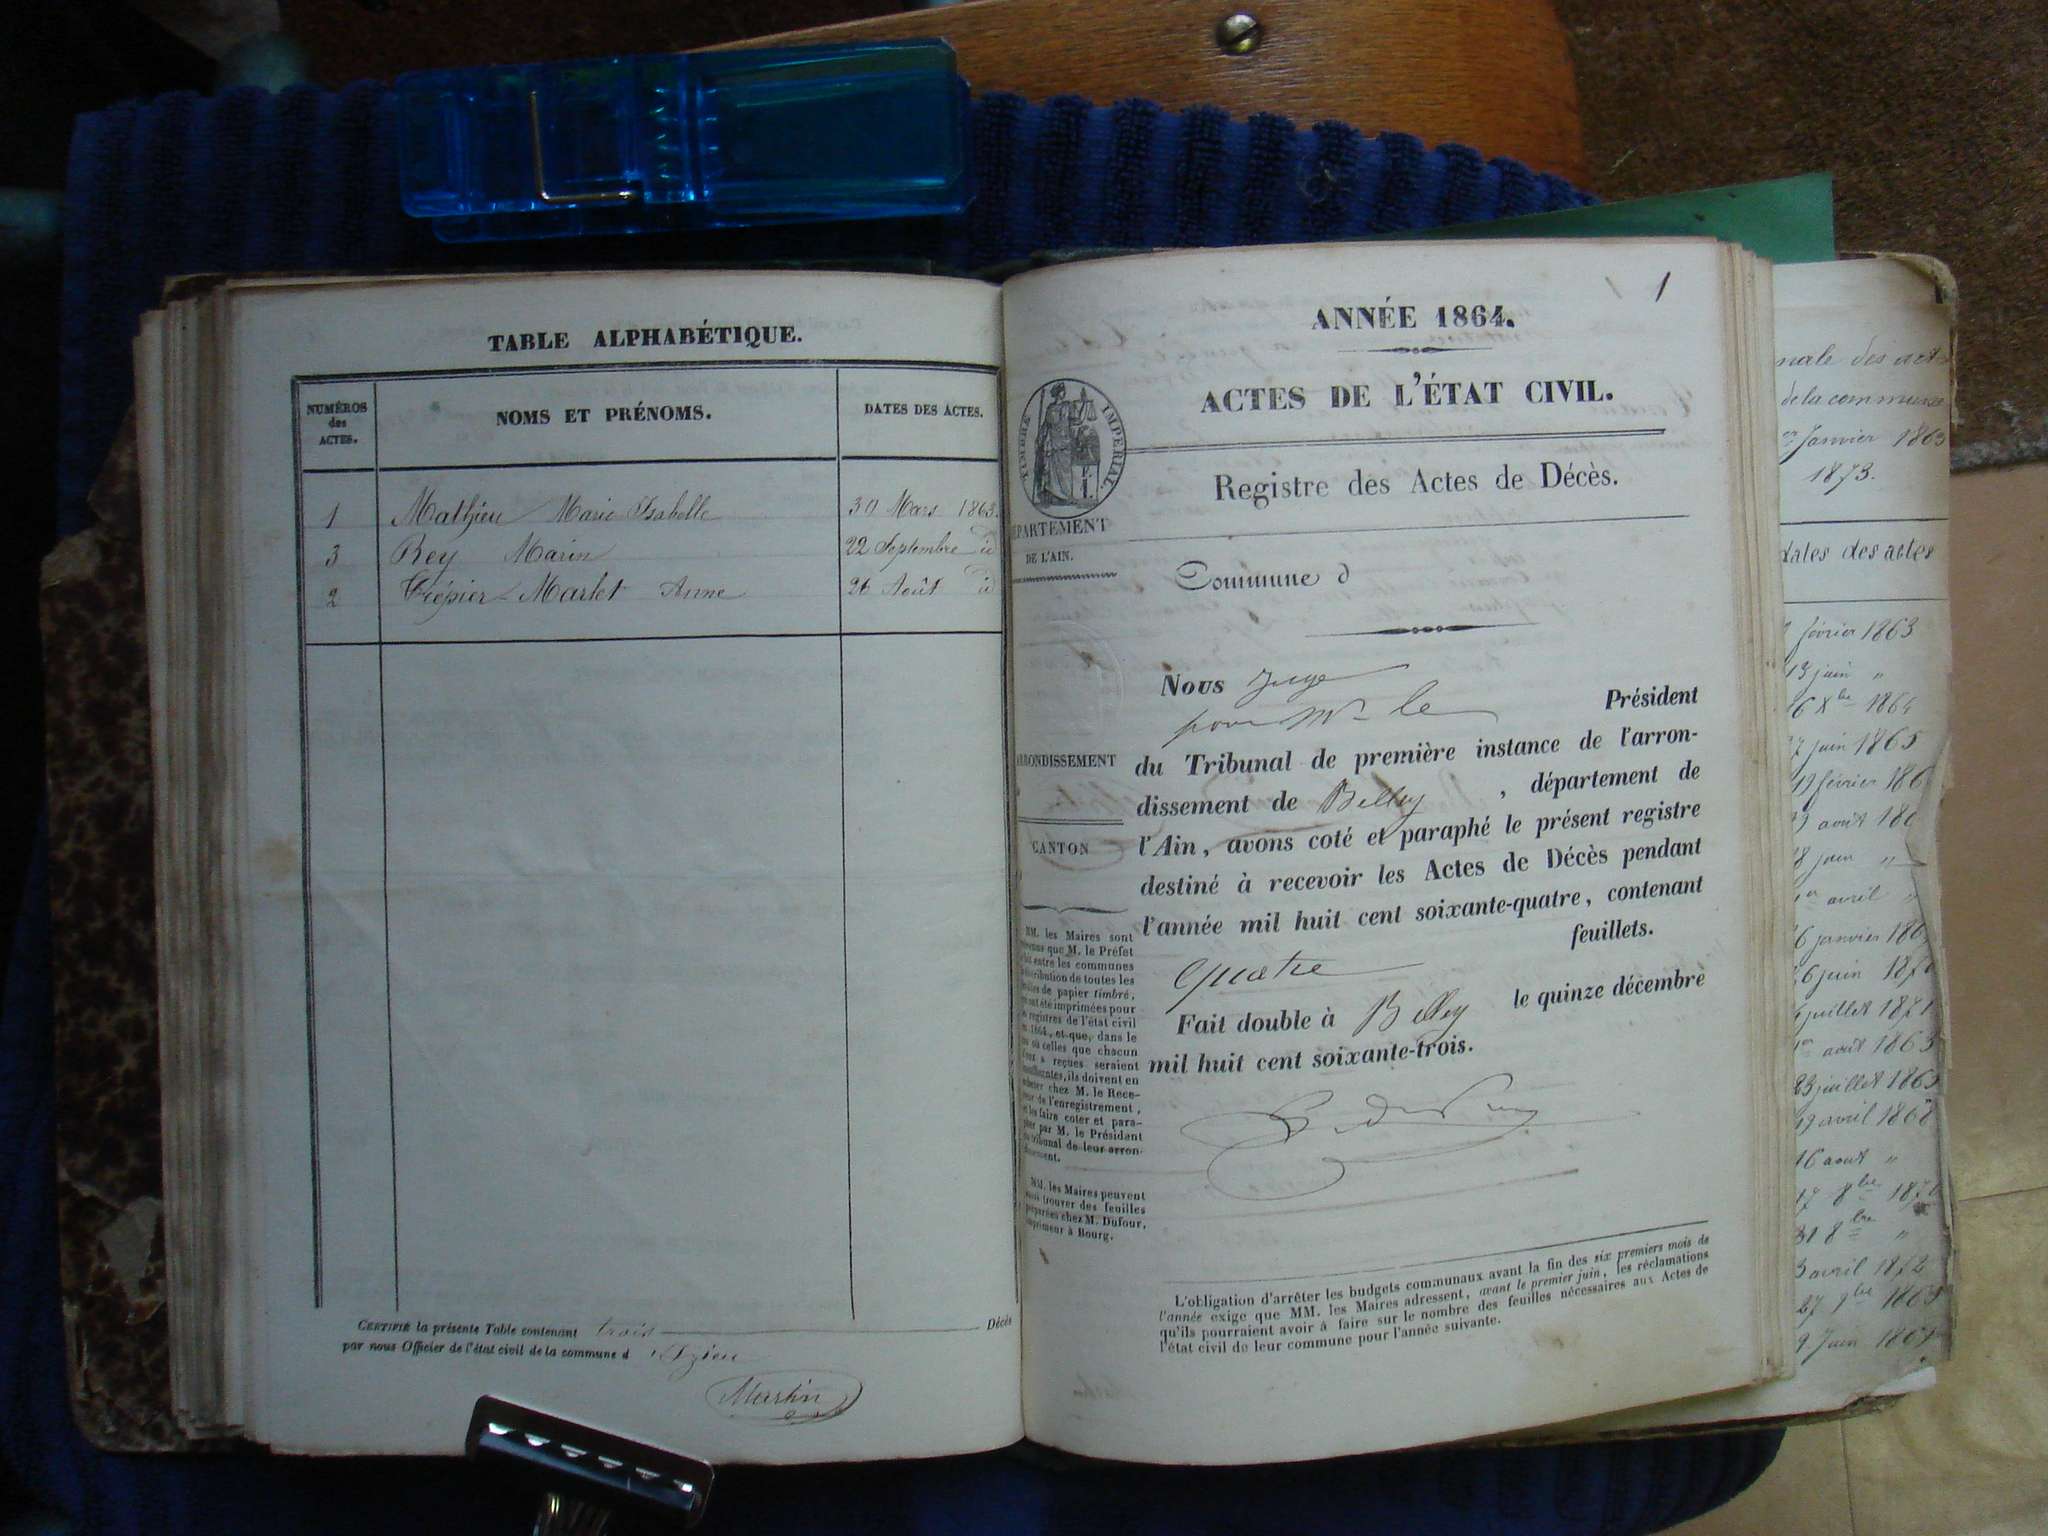 TABLE ALPHABÉTIQUE.
NUMÉROS
des
ACTES.
NOMS ET PRÉNOMS.
DATES DES ACTES.
1 Mathieu Marie Isabelle 30 Mars 1863.
3 Rey Marin 22 Septembre id
2 Trépier-Marlet Anne 26 Août id
CERTIFIÉ la présente Table contenant trois Décès
par nous Officier de l'état civil de la commune d'Izieu
Martin
1
ANNÉE 1864.
ACTES DE L'ÉTAT CIVIL.
TIMBRE IMPERIAL
Registre des Actes de Décès.
DÉPARTEMENT
DE L'AIN.
Commune d
Nous Juge
pour Mr le Président
du Tribunal de première instance de l'arron-
dissement de Belley, département de
l'Ain, avons coté et paraphé le présent registre
destiné à recevoir les Actes de Décès pendant
l'année mil huit cent soixante-quatre, contenant
quatre feuillets.
Fait double à Belley le quinze décembre
mil huit cent soixante-trois.
ARRONDISSEMENT
CANTON
MM. les Maires sont
que M. le Préfet
fait entre les communes
distribution de toutes les
de papier timbré,
ont été imprimées pour
registres de l'état civil
1864, et que, dans le
où celles que chacun
d'eux a reçues seraient
insuffisantes, ils doivent en
acheter chez M. le Rece-
veur de l'enregistrement,
et les faire coter et para-
pher par M. le Président
du tribunal de leur arron-
dissement.
MM. les Maires peuvent
aussi trouver des feuilles
préparées chez M. Dufour,
imprimeur à Bourg.
L'obligation d'arrêter les budgets communaux avant la fin des six premiers mois de
l'année exige que MM. les Maires adressent, avant le premier juin, les réclamations
qu'ils pourraient avoir à faire sur le nombre des feuilles nécessaires aux Actes de
l'état civil de leur commune pour l'année suivante.
nale des act
de la commune
er Janvier 1863
1873.
dates des actes
février 1863
13 juin "
6 Xbre 1864
7 juin 1865
19 février 186
août 186
8 juin "
er avril "
6 janvier 186
6 juin 1870
juillet 1871
er août 1863
23 juillet 1865
avril 1868
16 août "
17 8bre 187
31 8bre "
3 avril 1872
27 9bre 1863
9 Juin 186